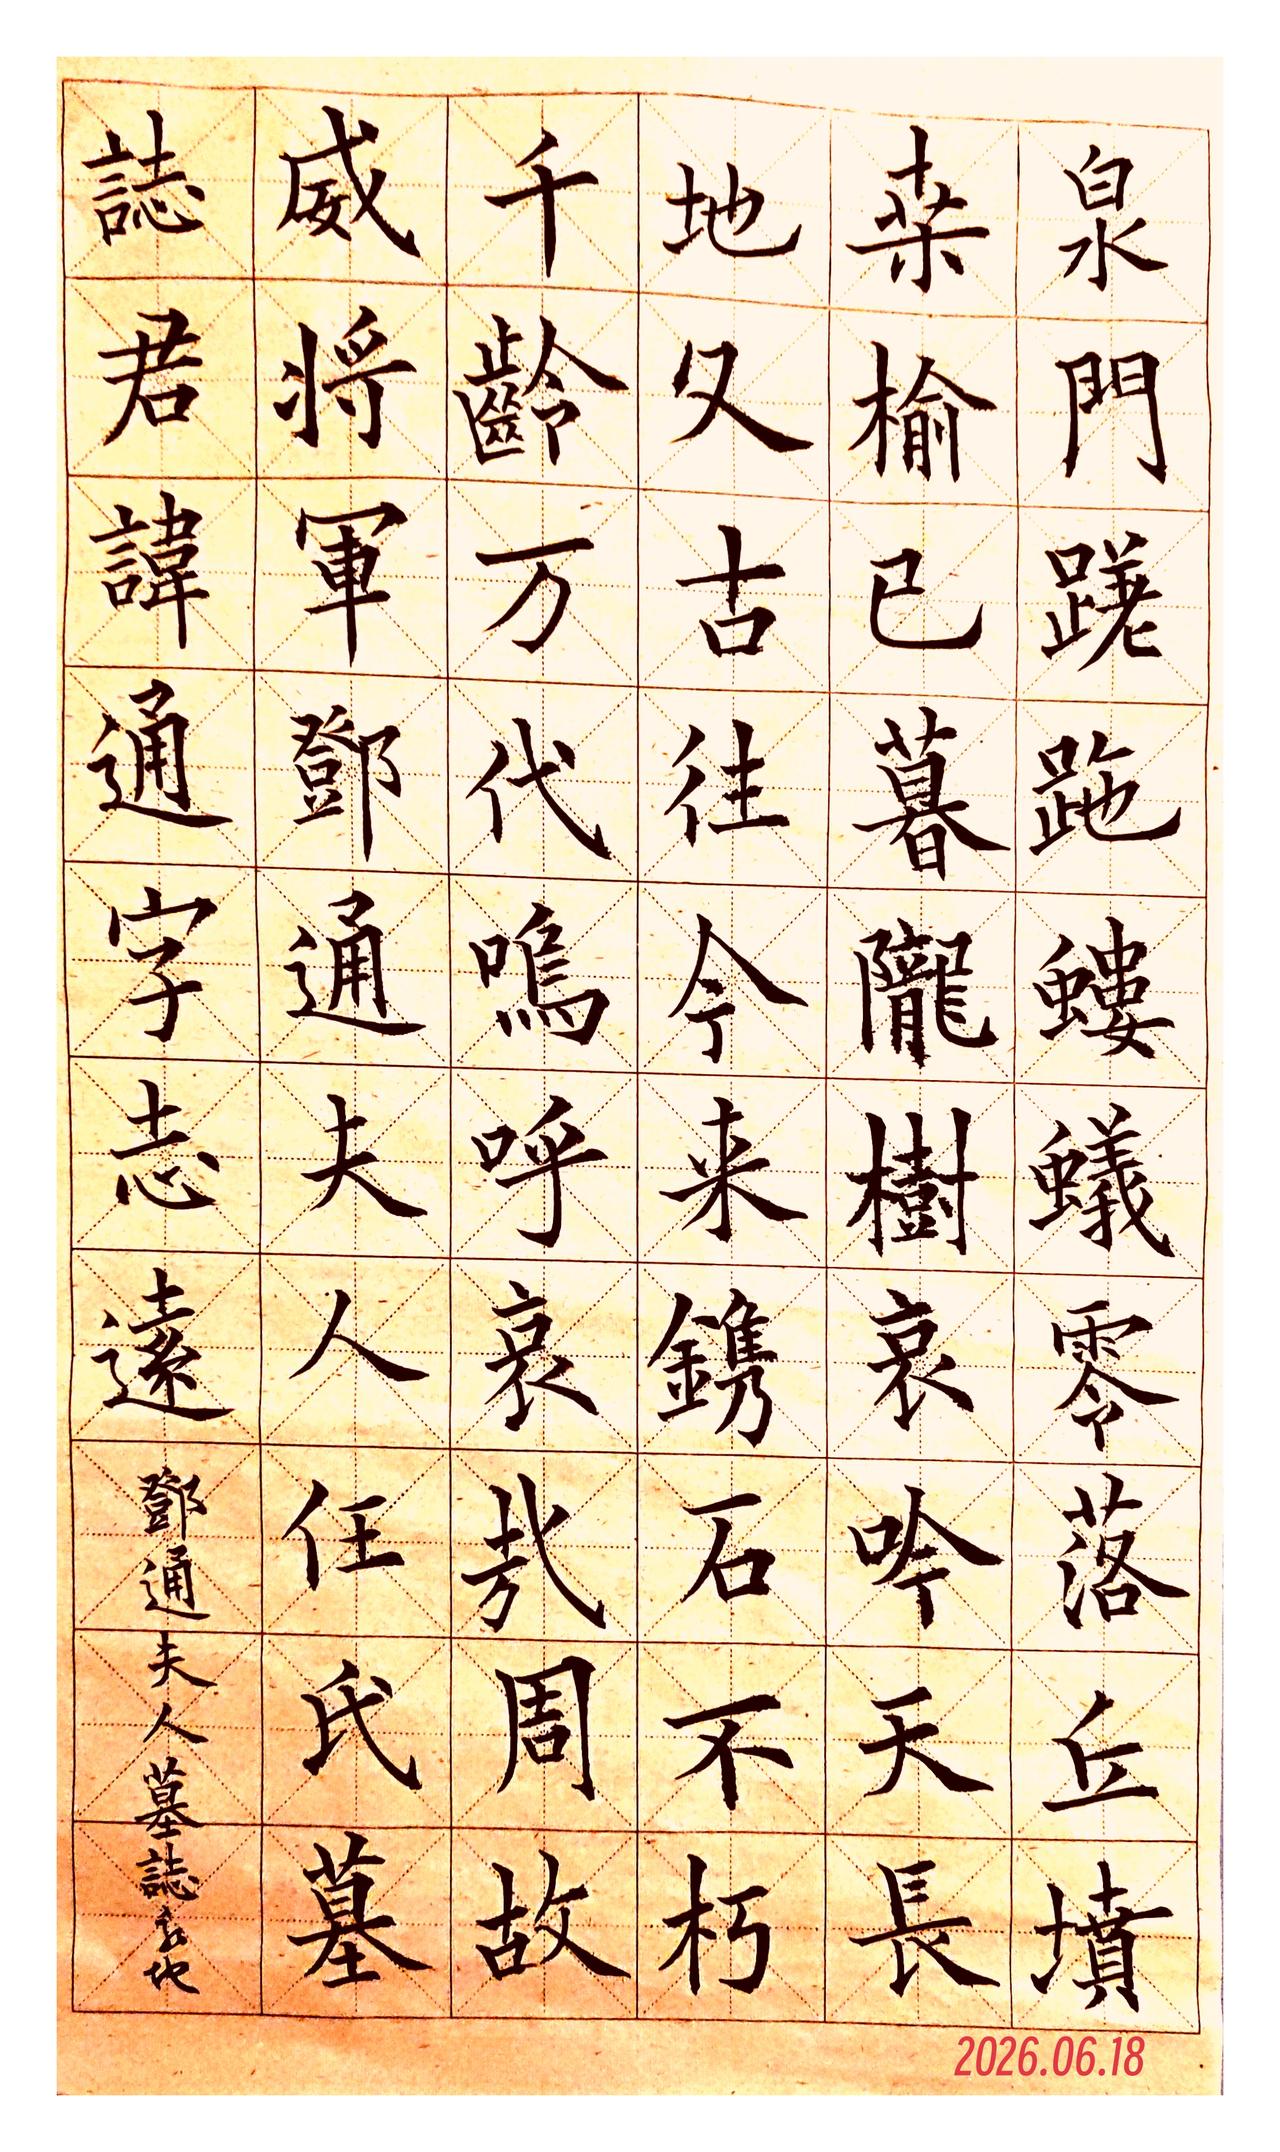 泉門蹉跎螻蟻零落丘墳
桒榆已暮隴樹哀吟天長
地久古往今来鐫石不朽
千齡万代嗚呼哀㢤周故
威将軍鄧通夫人任氏墓
誌君諱通字志遠
鄧通夫人墓誌
2026.06.18